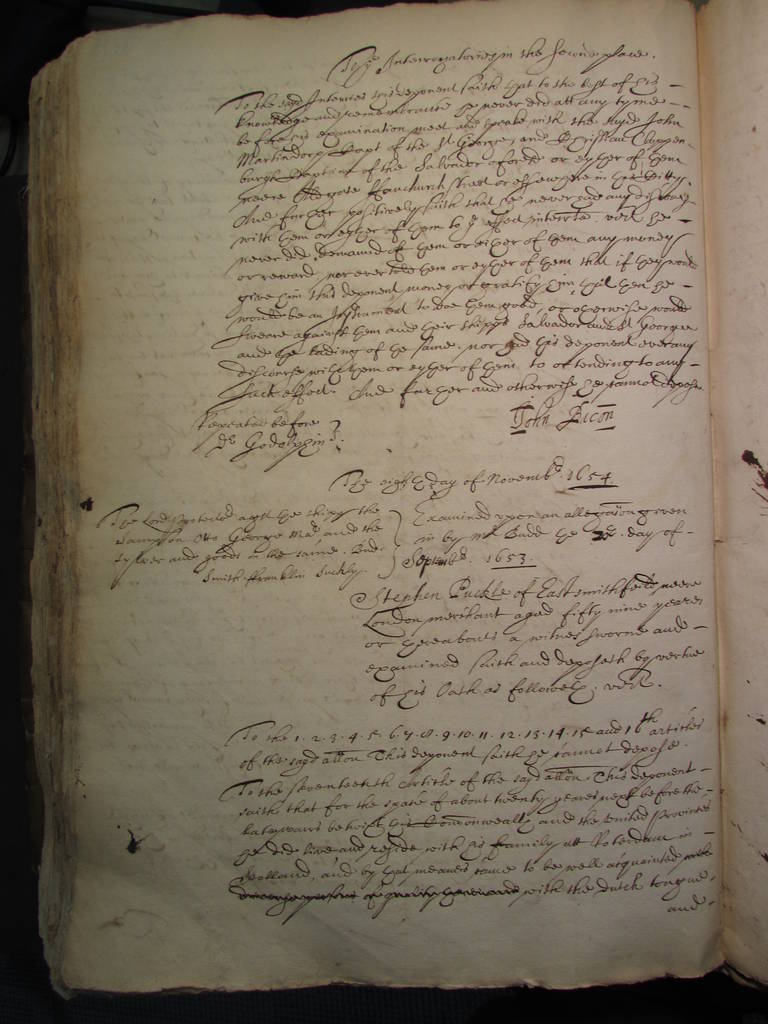 To ye Interrogatories in the second place.
To the said Interries this deponent saith that to the best of his
knowledge and remembrance he never did att any tyme
before his examination meet and speake with the sayd John
Martindorp Capt of the St George, and Christian Cloppen
burgh Captaine of the Salvador aforesd or eyther of them
neere Aldgate ffanchurch street or elsewhere in this Citty,
And further positively saith that he never had any discourse
with them or eyther of them to ye effect interrte. and he
never did demaund of them or either of them any money
or reward nor ever told them or eyther of them that if they would
give him this deponent money or gratify him that then he
would be an Instrument to doe them good, or otherwise would
sweare against them and their shipps Salvador and St George
and the lading of the same. nor had this deponent ever any
discourse with them or eyther of them to or tending to any
such effect. And further and otherwise he cannot depose.
Repeated before
Dr Godolphin
John Bicon
The eighth day of Novembr. 1654.
The Lord Protector agst the shipps the
Sampson Otto George Mr, and the
sylver and goods in the same. Budd
Smith ffranklin Suckly.
Examined upon an allegation given
in by Mr Budd the day of
September. 1653.
Stephen Puckle of Eastsmithfeild neere
London merchant aged fifty nine yeares
or thereabouts a witnes sworne and
examined saith and deposeth by vertue
of his Oath as followeth. vizt.
To the 1. 2. 3. 4. 5. 6. 7. 8. 9. 10. 11. 12. 13. 14. 15 and 16th articles
of the sayd allon This deponent saith he cannot depose.
To the seventeenth Article of the sayd allon. This deponent
saith that for the space of about twenty yeares next before the
late warrs betwixt this Commonwealth and the United Provinces
he did live and reside with his ffamily att Roterdam in
Holland, and by that meanes came to be well acquainted
with the Dutch tongue
and